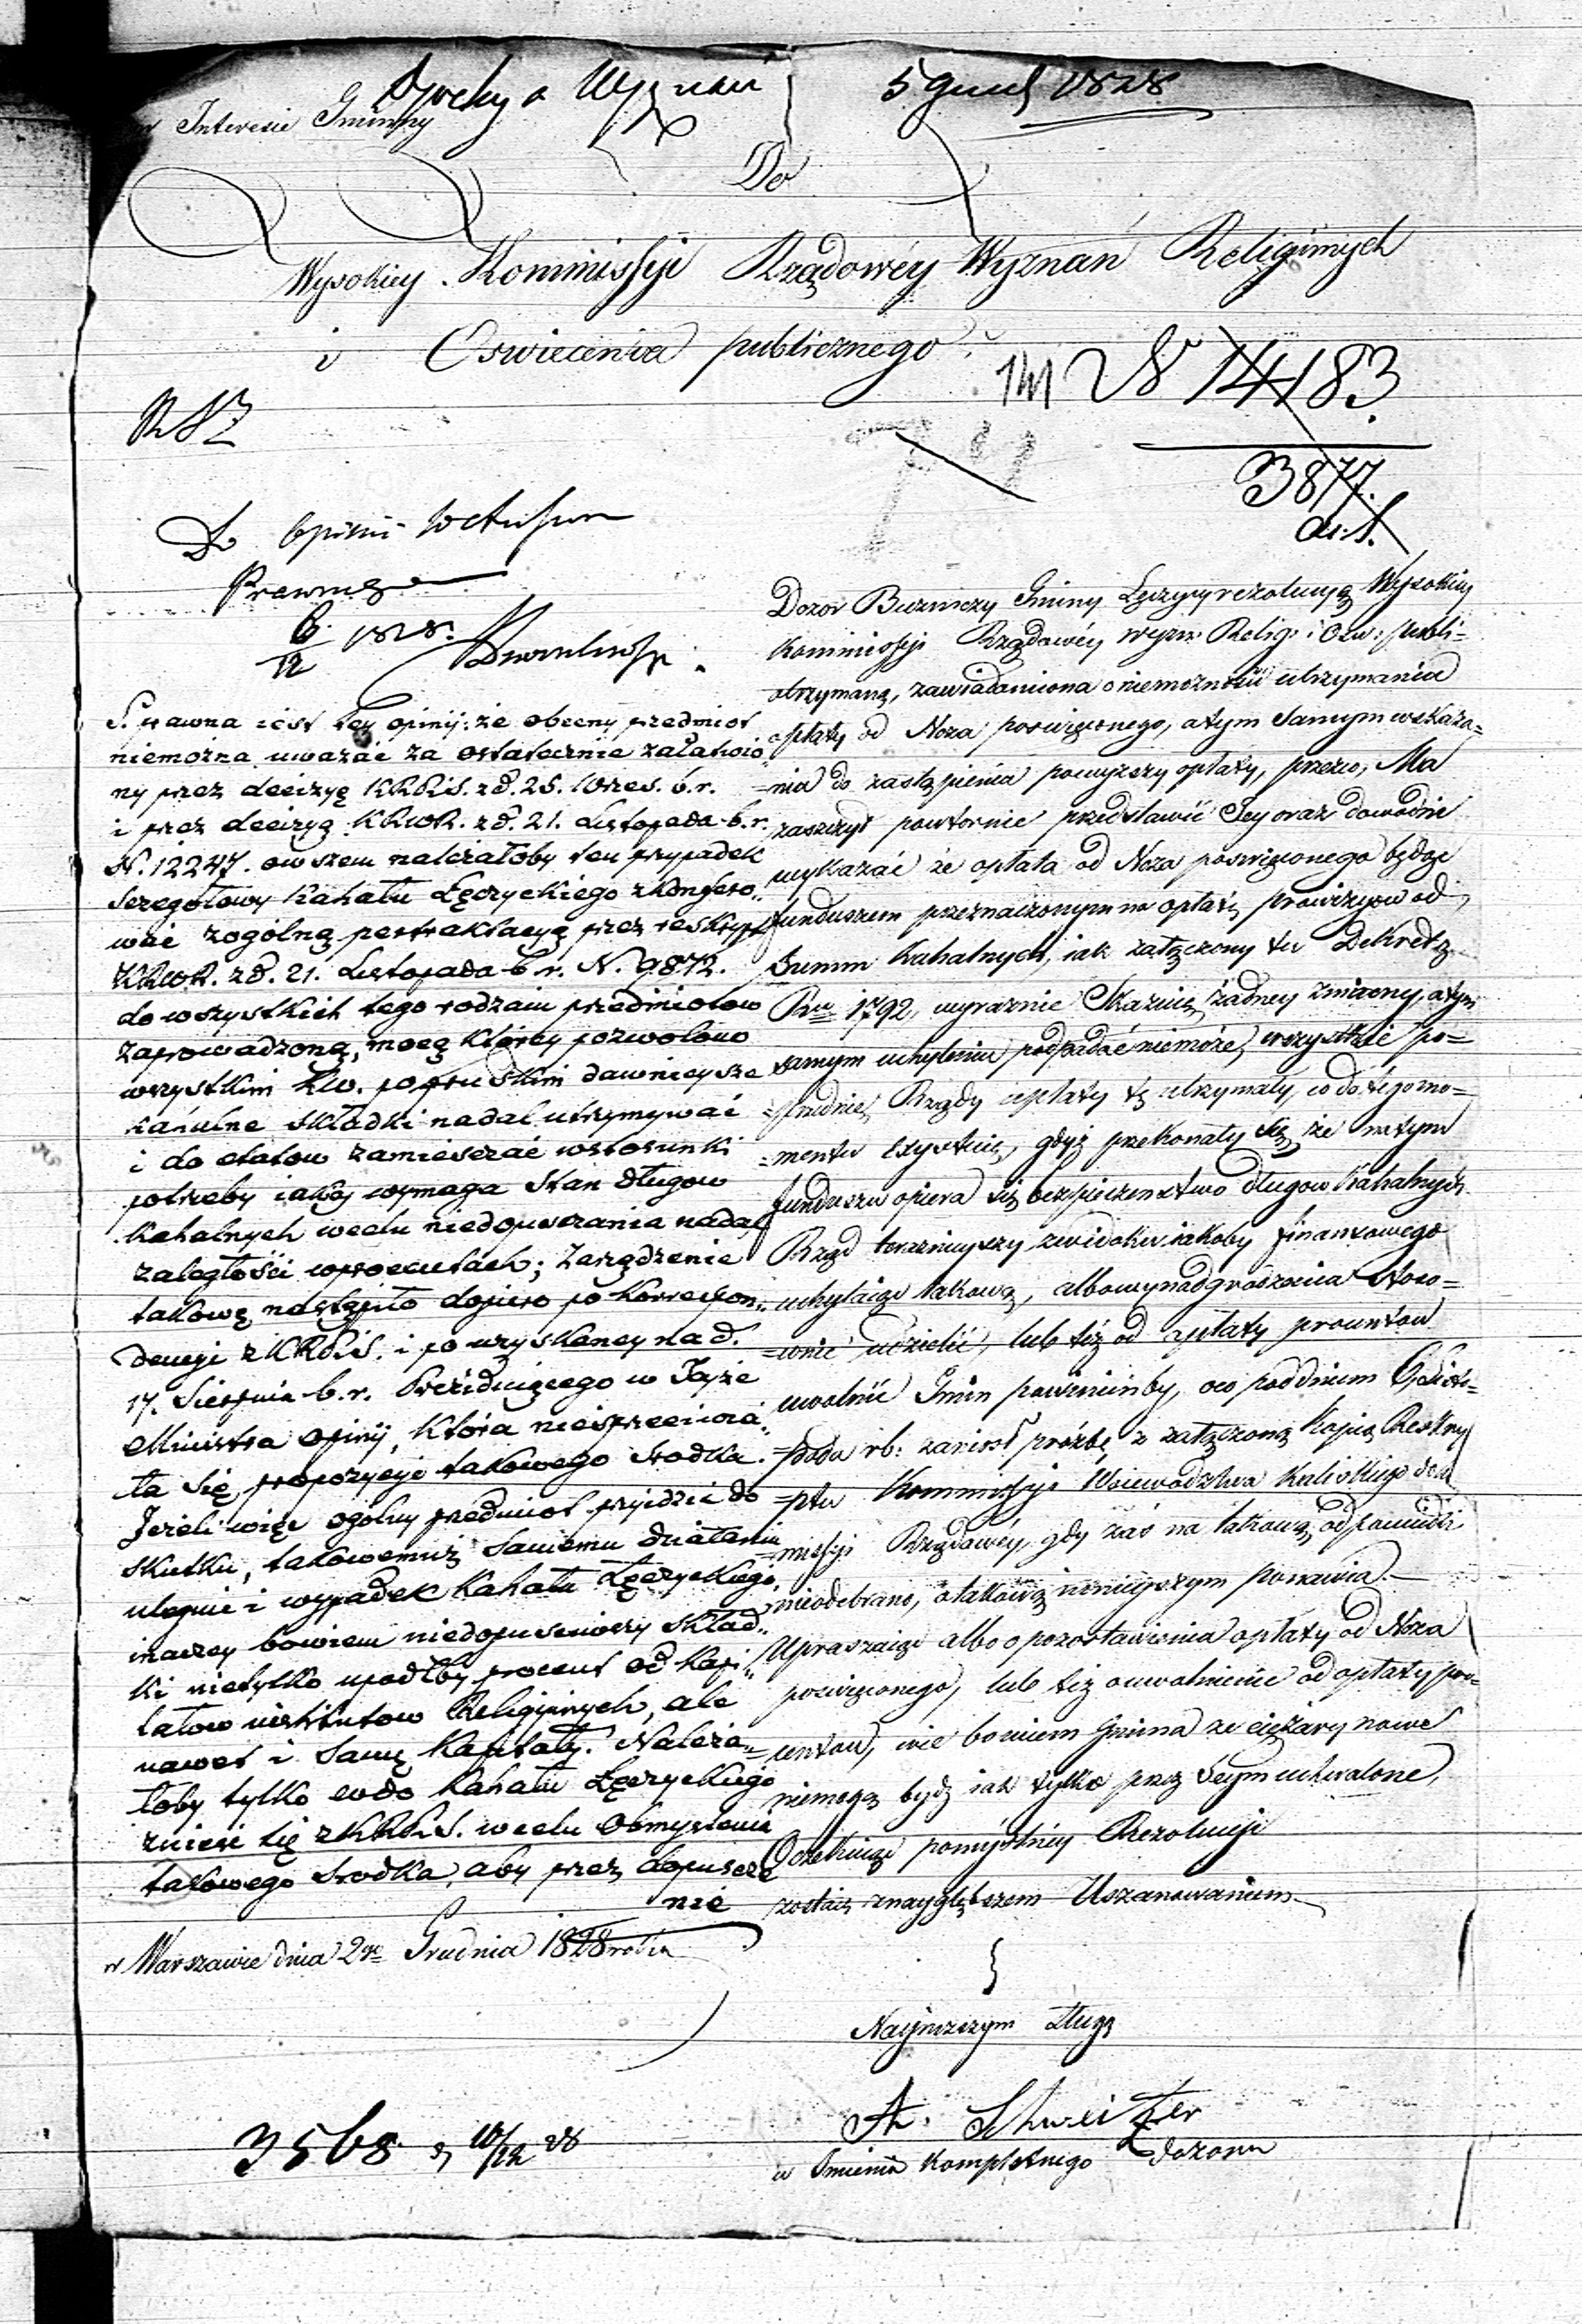 w Interesie Gminny
5 Grud 1828
Do
Wysokiey Kommissyi Rządowéy Wyznań Religiinych
i Oswiecenia publicznego.
141 N 14183
3877.
Do Opinii
Prawney
6/12 1828.
S. prawna iest tey opinij: że obecny przedmiot
niemożna uważać za ostatecznie załatwio„
ny przez decizyę KRPiS. z d. 25. Wrześ. b. r.
i przez decizyą KRWR. z d. 21. Listopada b. r.
N. 12247. owszem należałoby ten przypadek
szczegołowy Kahału Łęczyckiego
wać z ogólną pertraktacyą przez reskrypt
KRWR. z d. 21. Listopada b. r. N. 9872.
do wszystkich tego rodzaiu przedmiotow
zaprowadzoną, mocą którey pozwolono
wszystkim KW. popruskim dawnieysze
kahalne składki nadal utrzymywać
i do etatow zamieszczać w stosunki
potrzeby iakiey wymaga stan długow
Kahalnych wcelu niedopuszczania nadal
zaległości w procentach; zarządzenie
takowe nastąpiło dopiero po korrespon„
dencyi z KRPiS. i po uzyskaney na d.
17. Sierpnia b. r. Prezyduiącego w Teyże
Ministra opinij, która niesprzeciwia„
ła się propozycyi takowego srodka.
Jeżeli więc ogólny przedmiot przyidzie do
skutku, takowemuż samemu działaniu
ulegnie i wypadek Kahału Łęczyckiego,
inaczey bowiem niedopuściwszy skład„
ki nietylko upadłby procent od kapi„
tałow institutow Religiinych, ale
nawet i same kapitały. Należa„
łoby tylko co do Kahału Łęczyckiego
znieść się z KRPiS. wcelu obmyslenia
takowego srodka, aby przez dopuszcze
nie
Dozor Bużniczy Gminy Łęczycy rezolucyą Wysokiey
Kommissyi Rządowéy Wyzn: Relig: i Ośw: publi=
otrzymaną, zawiadomiona o niemożności utrzymania
opłaty od Noża poswięconego, a tym samym wskaza=
=nia do zastąpienia powyższey opłaty, przeto, Ma
zaszczyt powtornie przedstawić Jey oraz dowodnie
wykazać że opłata od Noża poswięconego będąc
funduszem przeznaczonym na opłatę prowizyow od
Summ Kahalnych, iak załączony tu Dekret z
Ru 1792, wyraznie Skazuie, żadney zmiany, a tym
samym uchyleniu podpadać niemoże, wszystkie po=
=przednie, Rządy opłatę tę utrzymały, co do tego mo=
=mentu exystuie, gdyż przekonały się że na tym
funduszu opiera się bezpieczeństwo długow Kahalnych
Rząd terazniejszy z widoku iakoby finansowego
uchylaiąc takową, albo wynadgrodzenia stoso=
=wnie udzielić, lub téż od opłaty procentow
uwolnić Gmin powinienby, oco pod dniem 6 Listo=
=pada rb: zaniosł prośbę z załączoną kopią Reskry
=ptu Kommissyi Woiewodztwa Kaliskiego
=missyi Rządowéy, gdy zaś na takową odpowiedzi
nieodebrano, a takową ninieyszym ponawia.—
Upraszaiąc albo o pozostawienia opłaty od Noża
poswięconego, lub téż o uwolnienie od opłaty pro=
=centow, wie bowiem Gmina że ciężary nowe
niemogą bydź iak tylko przez Seym uchwalone,
Oczekuiąc pomyślney Rezolucyi
zostaie z naygłębszem Uszanowaniem
w Warszawie dnia 2go Grudnia 1828 roku
Nayniższym sługą
A. Schweitzer
w Imieniu kompletnego Dozoru
3568 10/12 28